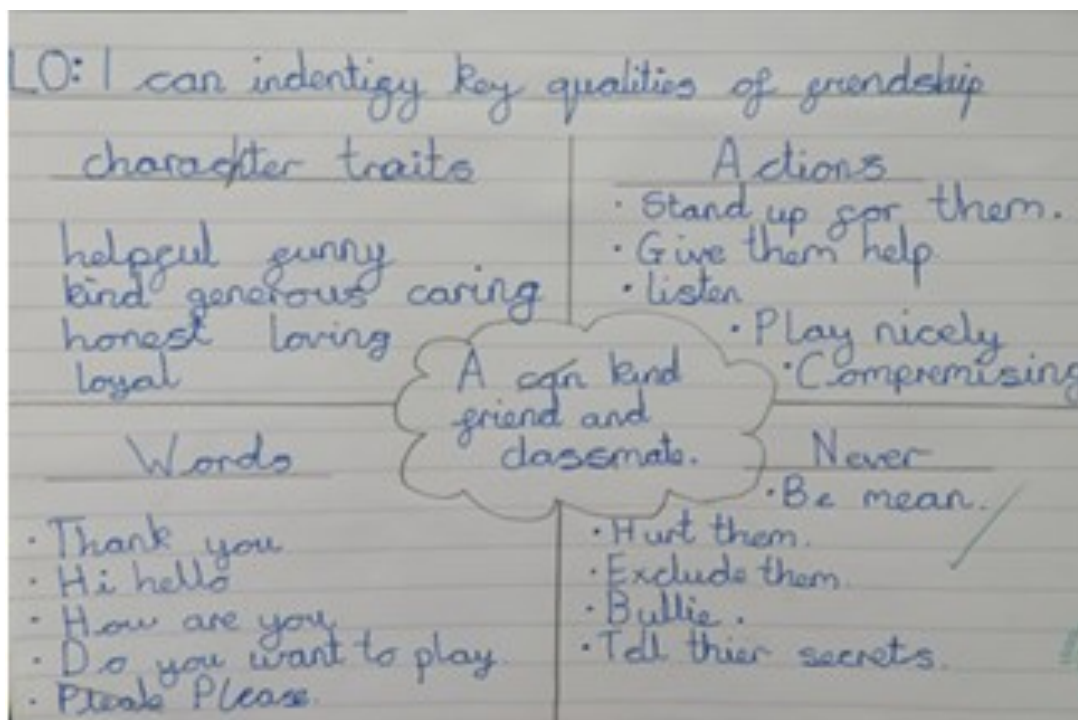 LO: I can indentify key qualities of friendship
charackter traits
helpful funny
kind generous caring
honest loving
loyal
Actions
· Stand up for them.
· Give them help
· listen
· Play nicely
· Compremising
A can kind
friend and
classmate.
Words
· Thank you
· Hi hello
· How are you
· Do you want to play.
· Please Please.
Never
· Be mean.
· Hurt them.
· Exclude them.
· Bullie.
· Tell thier secrets.